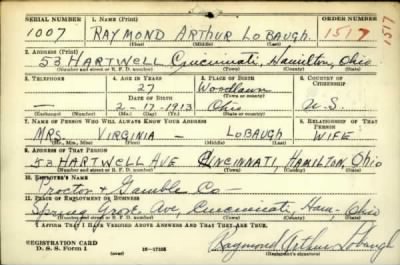 SERIAL NUMBER 1. NAME (Print) ORDER NUMBER
1007 RAYMOND ARTHUR LOBAUGH 1517
(First) (Middle) (Last)
1517
2. ADDRESS (Print)
53 HARTWELL Cincinnati, Hamilton, Ohio
(Number and street or R. F. D. number) (Town) (County) (State)
3. TELEPHONE 4. AGE IN YEARS 5. PLACE OF BIRTH 6. COUNTRY OF CITIZENSHIP
27 Woodlawn
DATE OF BIRTH (Town or county)
— 2-17-1913 Ohio U.S.
(Exchange) (Number) (Mo.) (Day) (Yr.) (State or country)
7. NAME OF PERSON WHO WILL ALWAYS KNOW YOUR ADDRESS 8. RELATIONSHIP OF THAT PERSON
MRS. VIRGINIA — LOBAUGH WIFE
(Mr., Mrs., Miss) (First) (Middle) (Last)
9. ADDRESS OF THAT PERSON
53 HARTWELL AVE CINCINNATI, HAMILTON, OHIO
(Number and street or R. F. D. number) (Town) (County) (State)
10. EMPLOYER'S NAME
Proctor & Gamble Co —
11. PLACE OF EMPLOYMENT OR BUSINESS
Spring Grove Ave, Cincinnati, Ham- Ohio
(Number and street or R. F. D. number) (Town) (County) (State)
I AFFIRM THAT I HAVE VERIFIED ABOVE ANSWERS AND THAT THEY ARE TRUE.
REGISTRATION CARD
D. S. S. Form 1 16-17105 Raymond Arthur Lobaugh